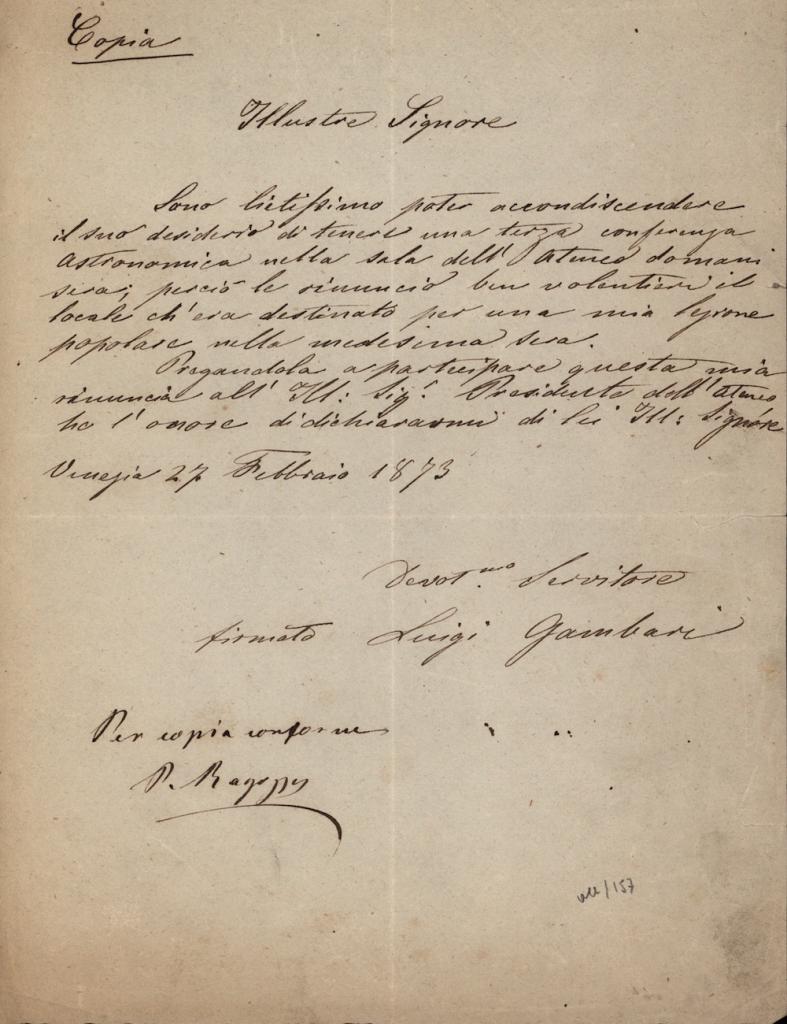 Copia
Illustre Signore
Sono lietissimo poter accondiscendere
il suo desiderio di tenere una terza conferenza
astronomica nella sala dell' Ateneo domani
sera; perciò le rinuncio ben volentieri il
locale ch'era destinato per una mia lezione
popolare nella medesima sera.
Pregandola a partecipare questa mia
rinuncia all' Ill: Sig.r Presidente dell' Ateneo
ho l'onore di dichiararmi di lei Ill: Signore
Venezia 27 Febbraio 1873
Devot.mo Servitore
firmato Luigi Gambari
Per copia conforme
P.
/157